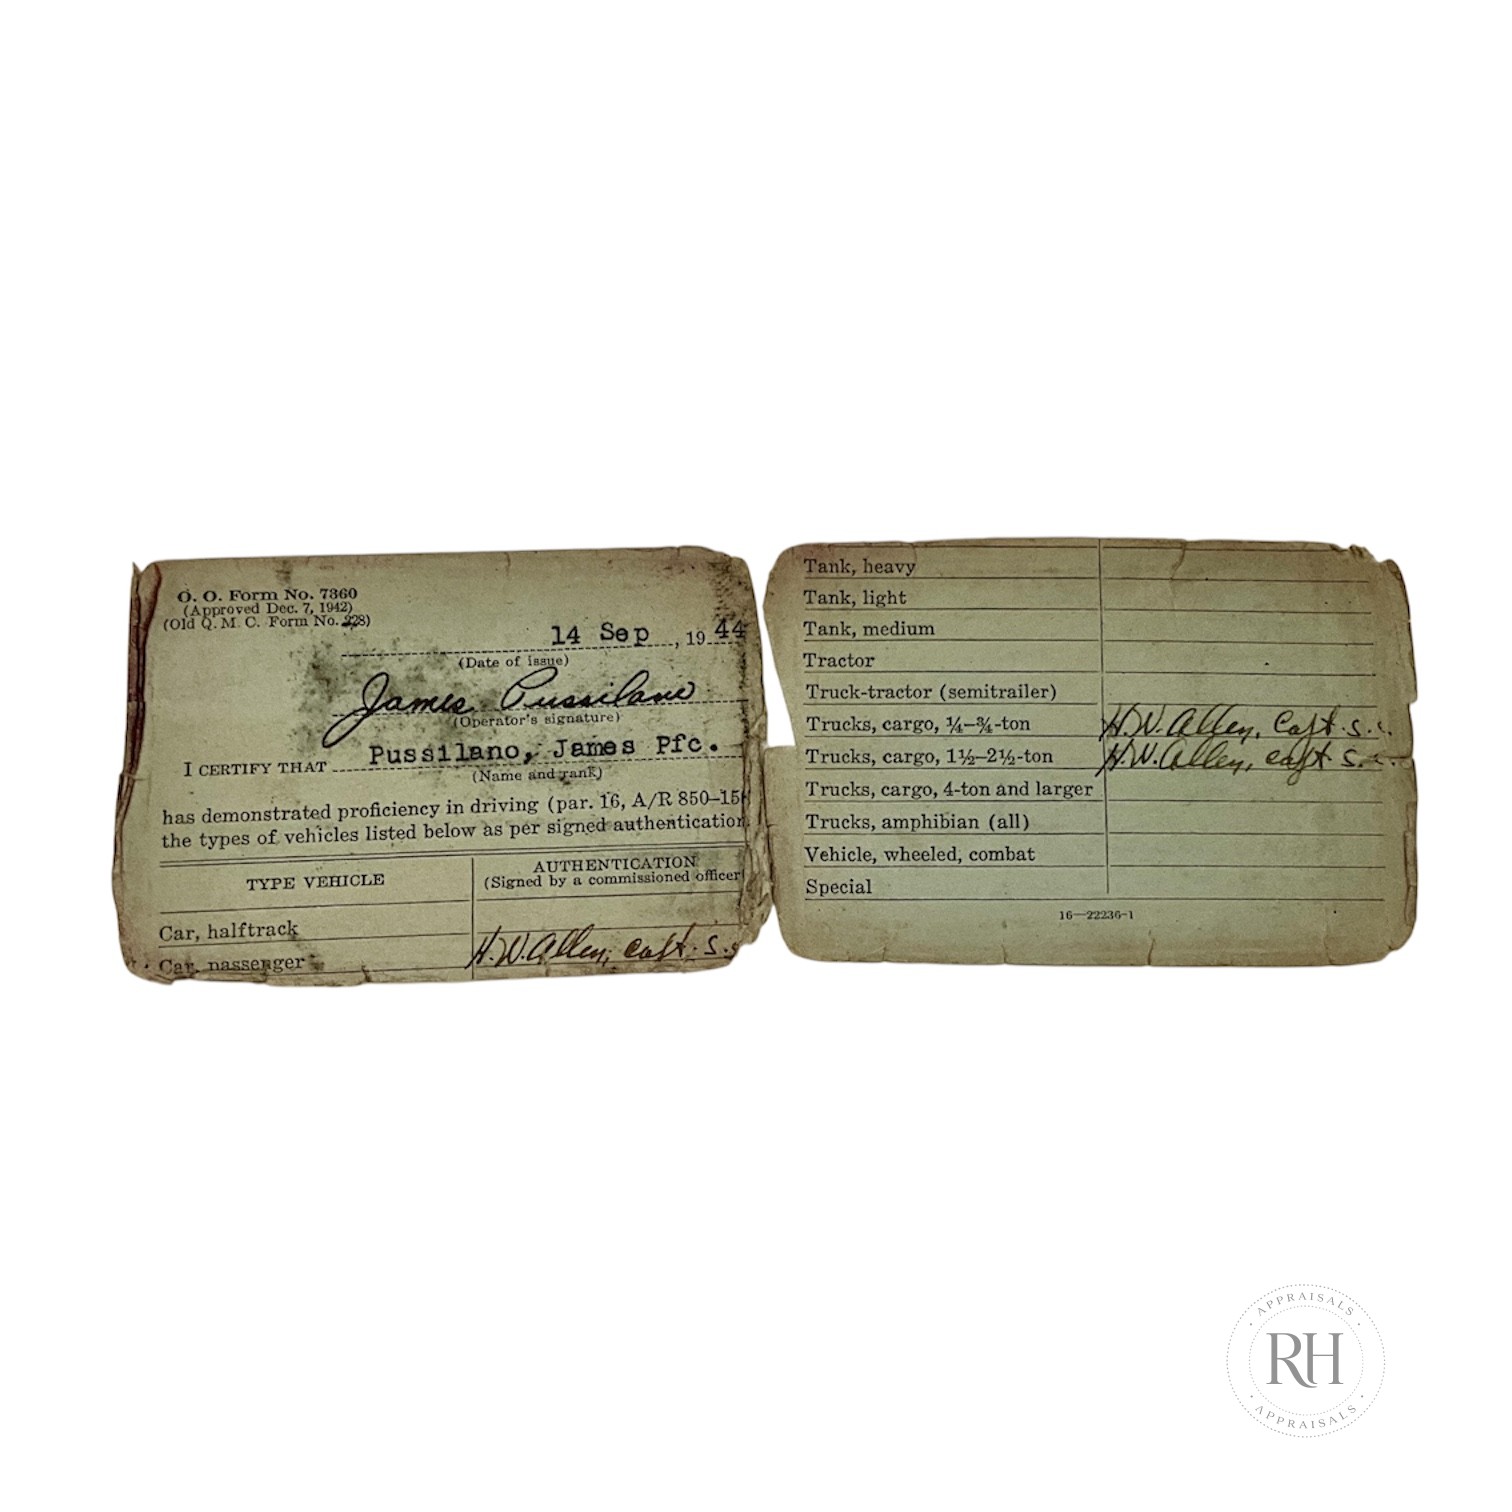 O. O. Form No. 7360
(Approved Dec. 7, 1942)
(Old Q. M. C. Form No. 228)
14 Sep, 1944
(Date of issue)
James Pussilano
(Operator's signature)
I CERTIFY THAT Pussilano, James Pfc.
(Name and rank)
has demonstrated proficiency in driving (par. 16, A/R 850-15
the types of vehicles listed below as per signed authentication
TYPE VEHICLE
AUTHENTICATION
(Signed by a commissioned officer
Car, halftrack
Car, passenger H. W. Allen, Capt. S.
Tank, heavy
Tank, light
Tank, medium
Tractor
Truck-tractor (semitrailer)
Trucks, cargo, ¼–¾-ton H. W. Allen, Capt. S.
Trucks, cargo, 1½–2½-ton H. W. Allen, Capt S.
Trucks, cargo, 4-ton and larger
Trucks, amphibian (all)
Vehicle, wheeled, combat
Special
16—22236-1
APPRAISALS
RH
APPRAISALS